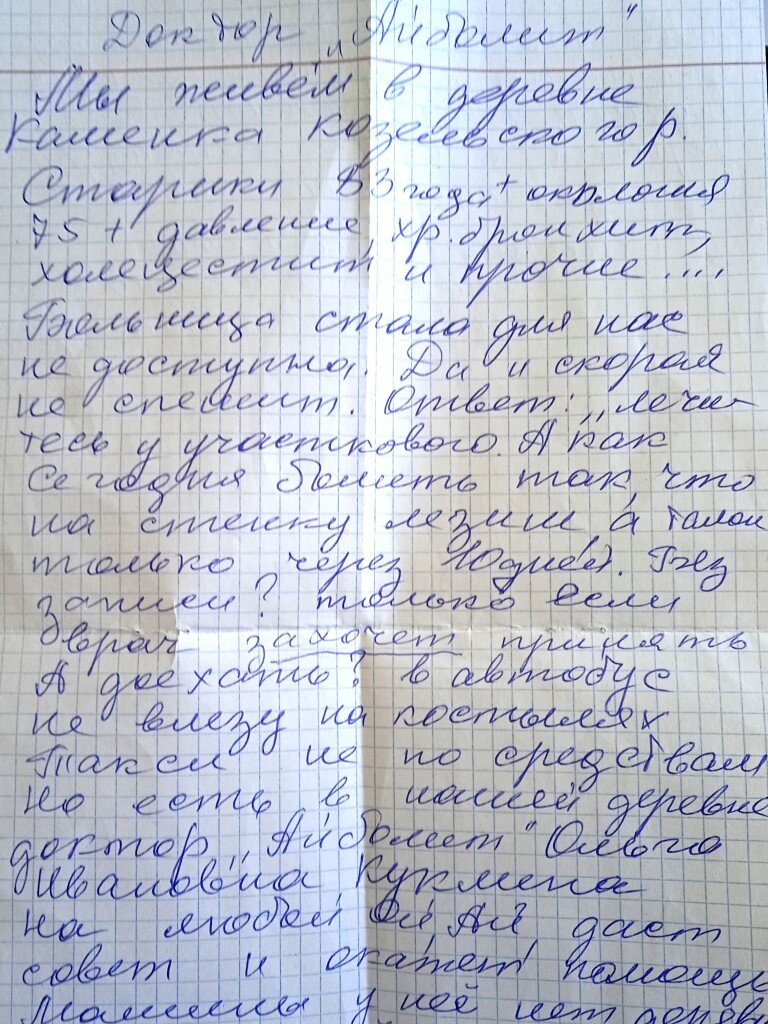 Доктор „Айболит"
Мы живём в деревне
Каменка козельского р.
Старики 83 года + онкология
75 + давление, хр. бронхит,
холецестит и прочие....
Больница стала для нас
не доступна. Да и скорая
не спешит. Ответ: „лечи-
тесь у участкового. А как
Сегодня болеть так, что
на стенку лезим а талон
только через 10дней). Без
записи? только если
врач захочет принять
А доехать? в автобус
не влезу на костылях
Такси не по средствам
Но есть в нашей деревне
доктор „Айболит" Ольга
Ивановна Кукмена
На любой ой, Ай, даст
совет и окажет помощь
Машины у неё нет